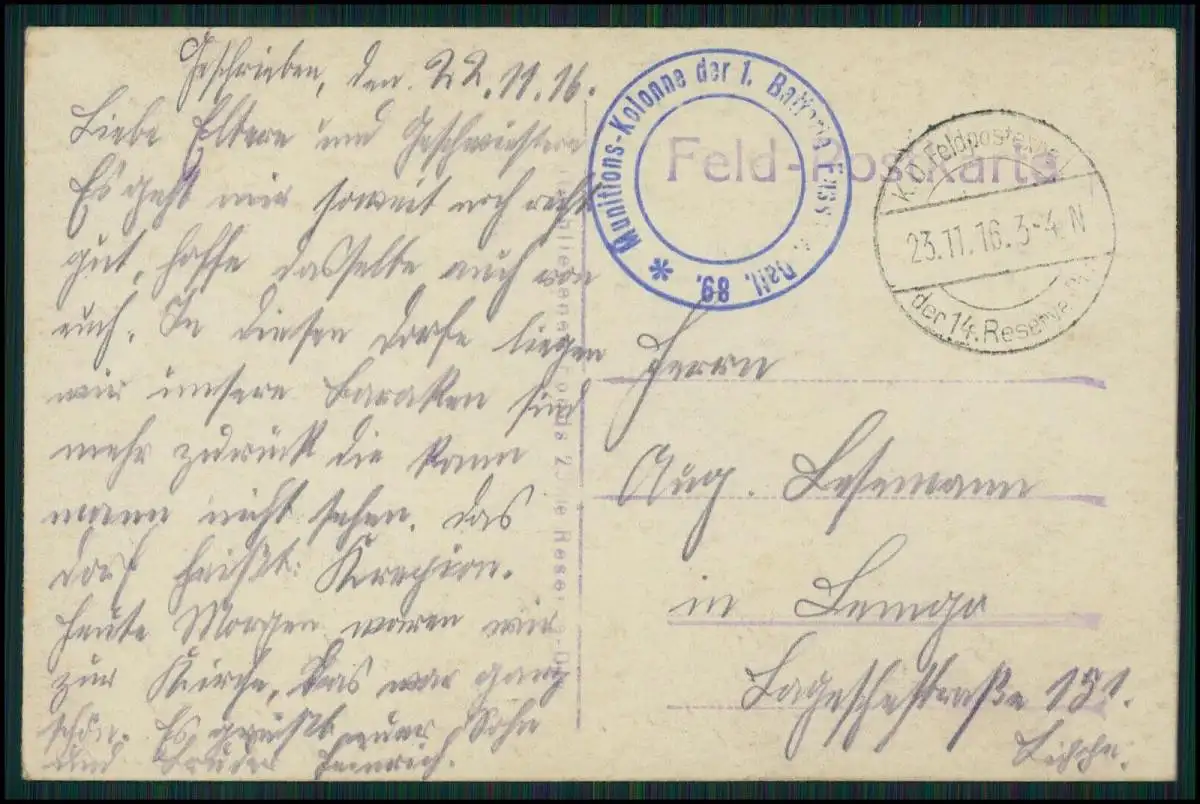 Geschrieben, den 22.11.16.
Liebe Eltern und Geschwister
Es geht mir soweit noch recht
gut, hoffe dasselbe auch von
euch. In diesen Dorfe liegen
wir unsere Baraken sind
mehr zurück die kann
mann nicht sehen. Das
Dorf heißt: Krepion.
Heute Morgen waren wir
zur Kirche, das war ganz
schön. Es grüßt euer Sohn
und Bruder Heinrich.
Munitions-Kolonne der 1. Batterie Fuss a. Batl. 89.
Feld-Postkarte
K.D. Feldpostexped.
23.11.16. 3-4 N
der 14. Reserve
Herrn
Aug. Lesemann
in Lemgo
Lageschestraße 151.
Lippe.
Hinterbliebenen Fonds
Reserve Div